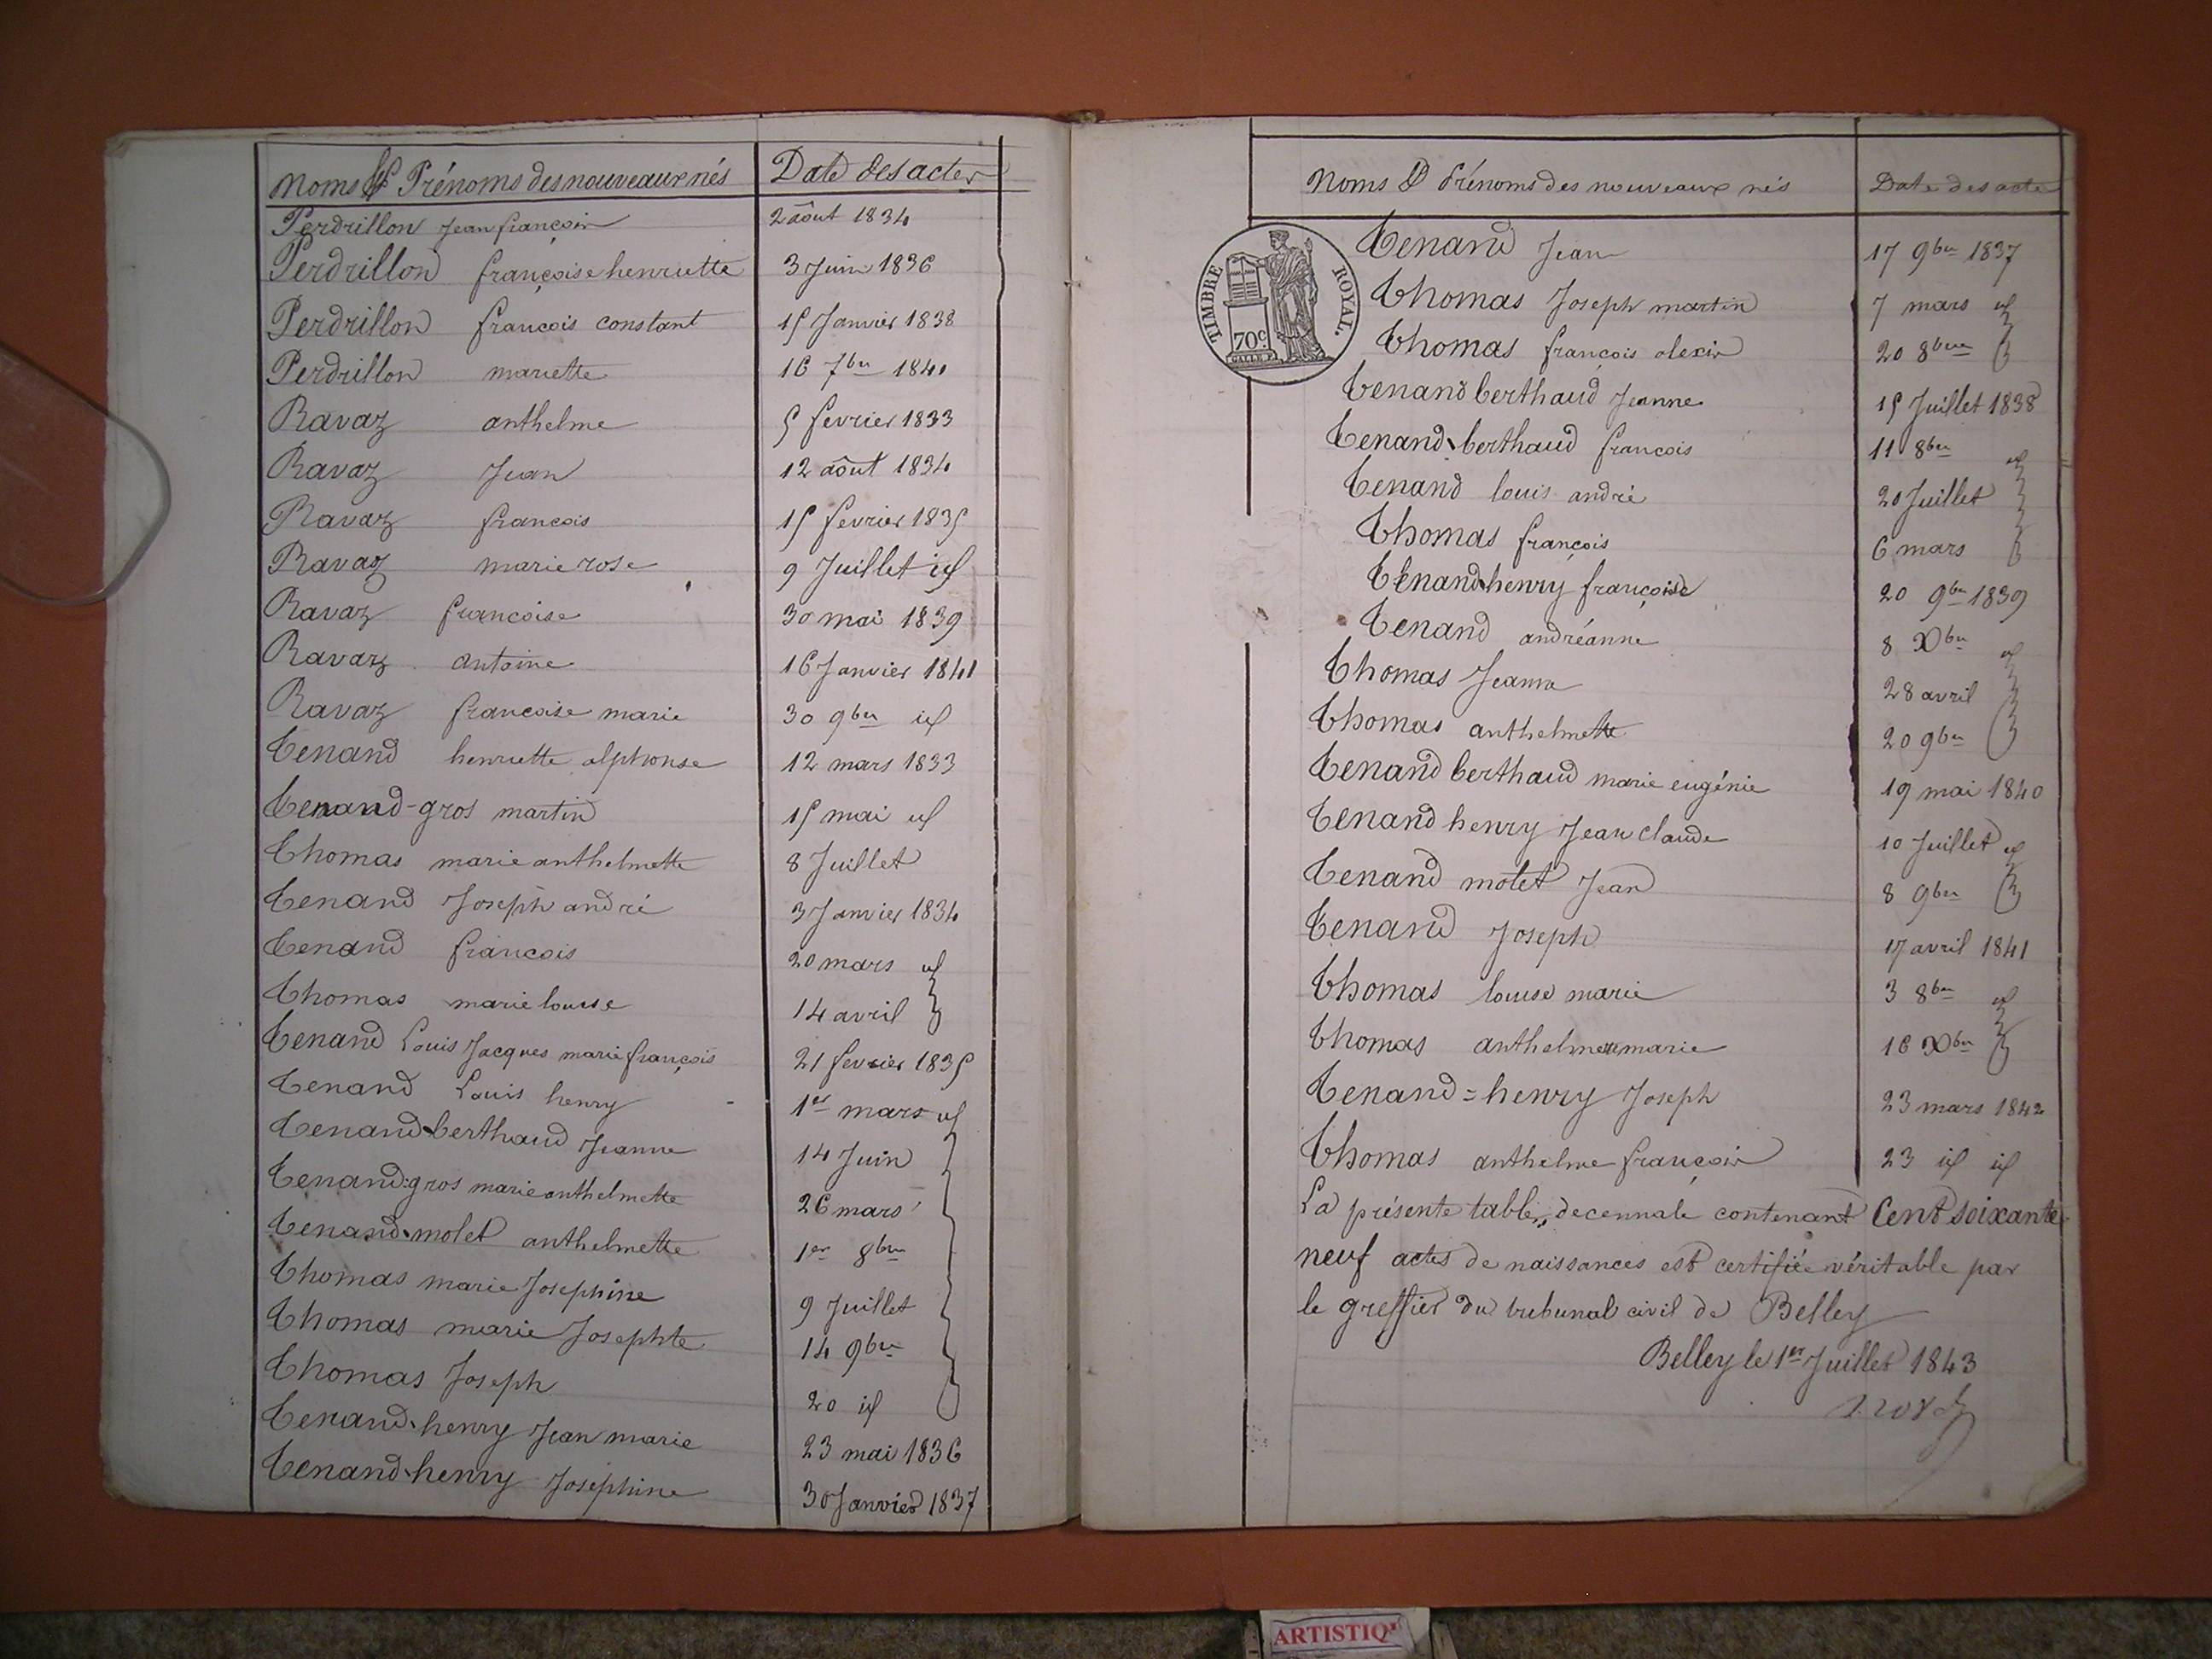 Noms & Prénoms des nouveaux nés Date des actes
Perdrillon Jean françois 2 août 1834
Perdrillon françoise henriette 3 Juin 1836
Perdrillon francois constant 15 Janvier 1838
Perdrillon mariette 16 7bre 1840
Ravaz anthelme 5 fevrier 1833
Ravaz Jean 12 août 1834
Ravaz francois 15 fevrier 1835
Ravaz marie rose 9 Juillet id
Ravaz francoise 30 mai 1839
Ravaz antoine 16 Janvier 1841
Ravaz francoise marie 30 9bre id
Tenand henriette alphonse 12 mars 1833
Tenand-gros martin 15 mai id
Thomas marie anthelmette 8 Juillet
Tenand Joseph andré 3 Janvier 1834
Tenand francois 20 mars id
Thomas marie louise 14 avril
Tenand Louis Jacques marie françois 21 fevrier 1835
Tenand Louis henry 1er mars id
Tenand-berthaud Jeanne 14 Juin
Tenand-gros marie anthelmette 26 mars
Tenand-molet anthelmette 1er 8bre
Thomas marie Josephine 9 Juillet
Thomas marie Josephte 14 9bre
Thomas Joseph 20 id
Tenand-henry Jean marie 23 mai 1836
Tenand-henry Josephine 30 Janvier 1837
Noms & Prénoms des nouveaux nés Date des acte
TIMBRE ROYAL.
70c
Tenand Jean 17 9bre 1837
Thomas Joseph martin 7 mars id
Thomas françois alexis 20 8bre
Tenand berthaud Jeanne 15 Juillet 1838
Tenand-berthaud francois 11 8bre id
Tenand louis andré 20 Juillet
Thomas françois 6 mars
Tenand-henry françoise 20 9bre 1839
Tenand andréanne 8 Xbre id
Thomas Jeanne 28 avril
Thomas anthelmette 20 9bre
Tenand berthaud marie eugénie 19 mai 1840
Tenand henry Jean claude 10 Juillet id
Tenand molet Jean 8 9bre
Tenand Joseph 17 avril 1841
Thomas louise marie 3 8bre id
Thomas anthelme marie 16 Xbre
Tenand=henry Joseph 23 mars 1842
Thomas anthelme françois 23 id id
La présente table decennale contenant Cent soixante
neuf actes de naissances est certifiée véritable par
le greffier du tribunal civil de Belley
Belley le 1er Juillet 1843
ARTISTIQ